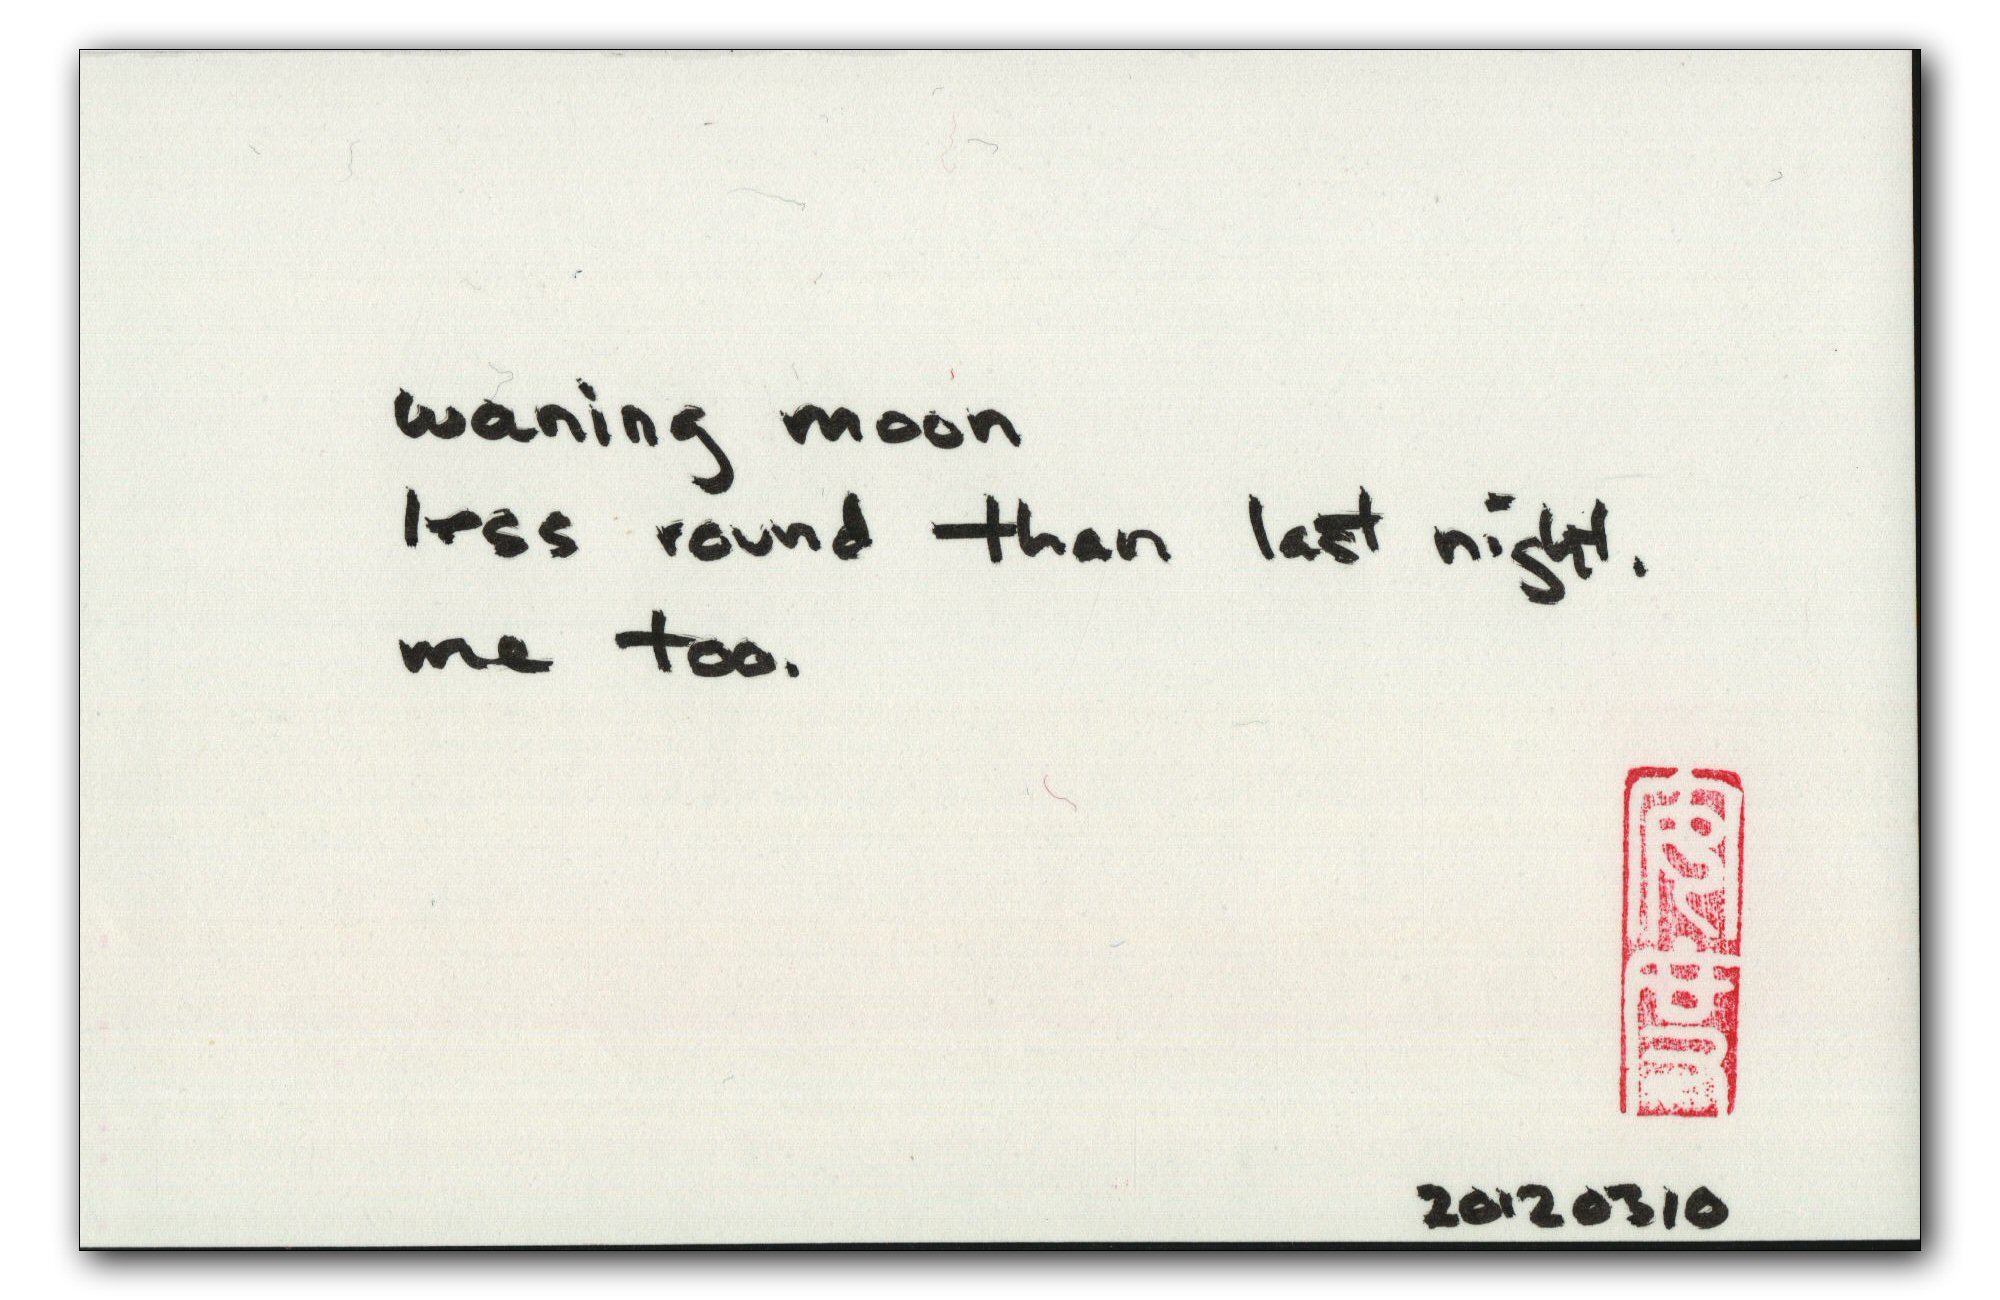 waning moon
less round than last night.
me too.
20120310